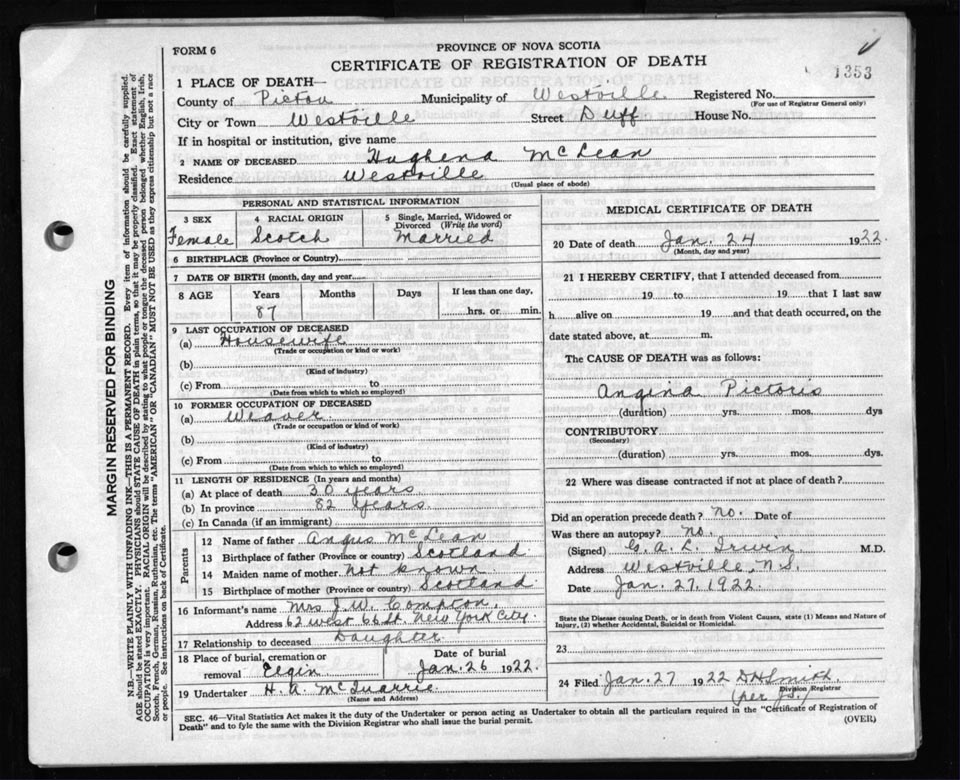 FORM 6
PROVINCE OF NOVA SCOTIA
CERTIFICATE OF REGISTRATION OF DEATH
1353
1 PLACE OF DEATH—
County of Pictou Municipality of Westville Registered No.
(For use of Registrar General only)
City or Town Westville Street Duff House No.
If in hospital or institution, give name
2 NAME OF DECEASED Hughena McLean
Residence Westville
(Usual place of abode)
PERSONAL AND STATISTICAL INFORMATION
3 SEX
Female
4 RACIAL ORIGIN
Scotch
5 Single, Married, Widowed or
Divorced (Write the word)
Married
6 BIRTHPLACE (Province or Country)
7 DATE OF BIRTH (month, day and year)
8 AGE Years Months Days If less than one day,
87 hrs. or min.
9 LAST OCCUPATION OF DECEASED
(a) Housewife
(Trade or occupation or kind or work)
(b)
(Kind of industry)
(c) From to
(Date from which to which so employed)
10 FORMER OCCUPATION OF DECEASED
(a) Weaver
(Trade or occupation or kind of work)
(b)
(Kind of industry)
(c) From to
(Date from which to which so employed)
11 LENGTH OF RESIDENCE (In years and months)
(a) At place of death 30 years
(b) In province 82 years.
(c) In Canada (if an immigrant)
Parents
12 Name of father Angus McLean
13 Birthplace of father (Province or country) Scotland.
14 Maiden name of mother Not known
15 Birthplace of mother (Province or country) Scotland.
16 Informant's name Mrs J.W. Compton,
Address 62 West 66 St. New York City.
17 Relationship to deceased Daughter
18 Place of burial, cremation or
removal Elgin
Date of burial
Jan. 26 1922.
19 Undertaker H. A. McQuarrie
(Name and Address)
MEDICAL CERTIFICATE OF DEATH
20 Date of death Jan. 24 1922.
(Month, day and year)
21 I HEREBY CERTIFY, that I attended deceased from
19 to 19 that I last saw
h alive on 19 and that death occurred, on the
date stated above, at m.
The CAUSE OF DEATH was as follows:
Angina Pictoris
(duration) yrs. mos. dys
CONTRIBUTORY
(Secondary)
(duration) yrs. mos. dys.
22 Where was disease contracted if not at place of death?
Did an operation precede death? no. Date of
Was there an autopsy? no.
(Signed) G. A. L. Irwin M.D.
Address Westville, N.S.
Date Jan. 27. 1922.
State the Disease causing Death, or in death from Violent Causes, state (1) Means and Nature of
Injury, (2) whether Accidental, Suicidal or Homicidal.
23
24 Filed Jan. 27 1922 DH Smith.
Division Registrar
(per J.S.)
SEC. 46—Vital Statistics Act makes it the duty of the Undertaker or person acting as Undertaker to obtain all the particulars required in the "Certificate of Registration of
Death" and to fyle the same with the Division Registrar who shall issue the burial permit.
(OVER)
MARGIN RESERVED FOR BINDING
N.B.—WRITE PLAINLY WITH UNFADING INK—THIS IS A PERMANENT RECORD. Every item of information should be carefully supplied.
AGE should be stated EXACTLY. PHYSICIANS should STATE CAUSE OF DEATH in plain terms, so that it may be properly classified. Exact statement of
OCCUPATION is very important. RACIAL ORIGIN will be described by stating to what people or tongue the deceased person belonged whether English, Irish,
Scotch, French, German, Russian, Ruthenian, etc. The terms "AMERICAN" OR "CANADIAN" MUST NOT BE USED as they express citizenship but not a race
or people. See instructions on back of Certificate.